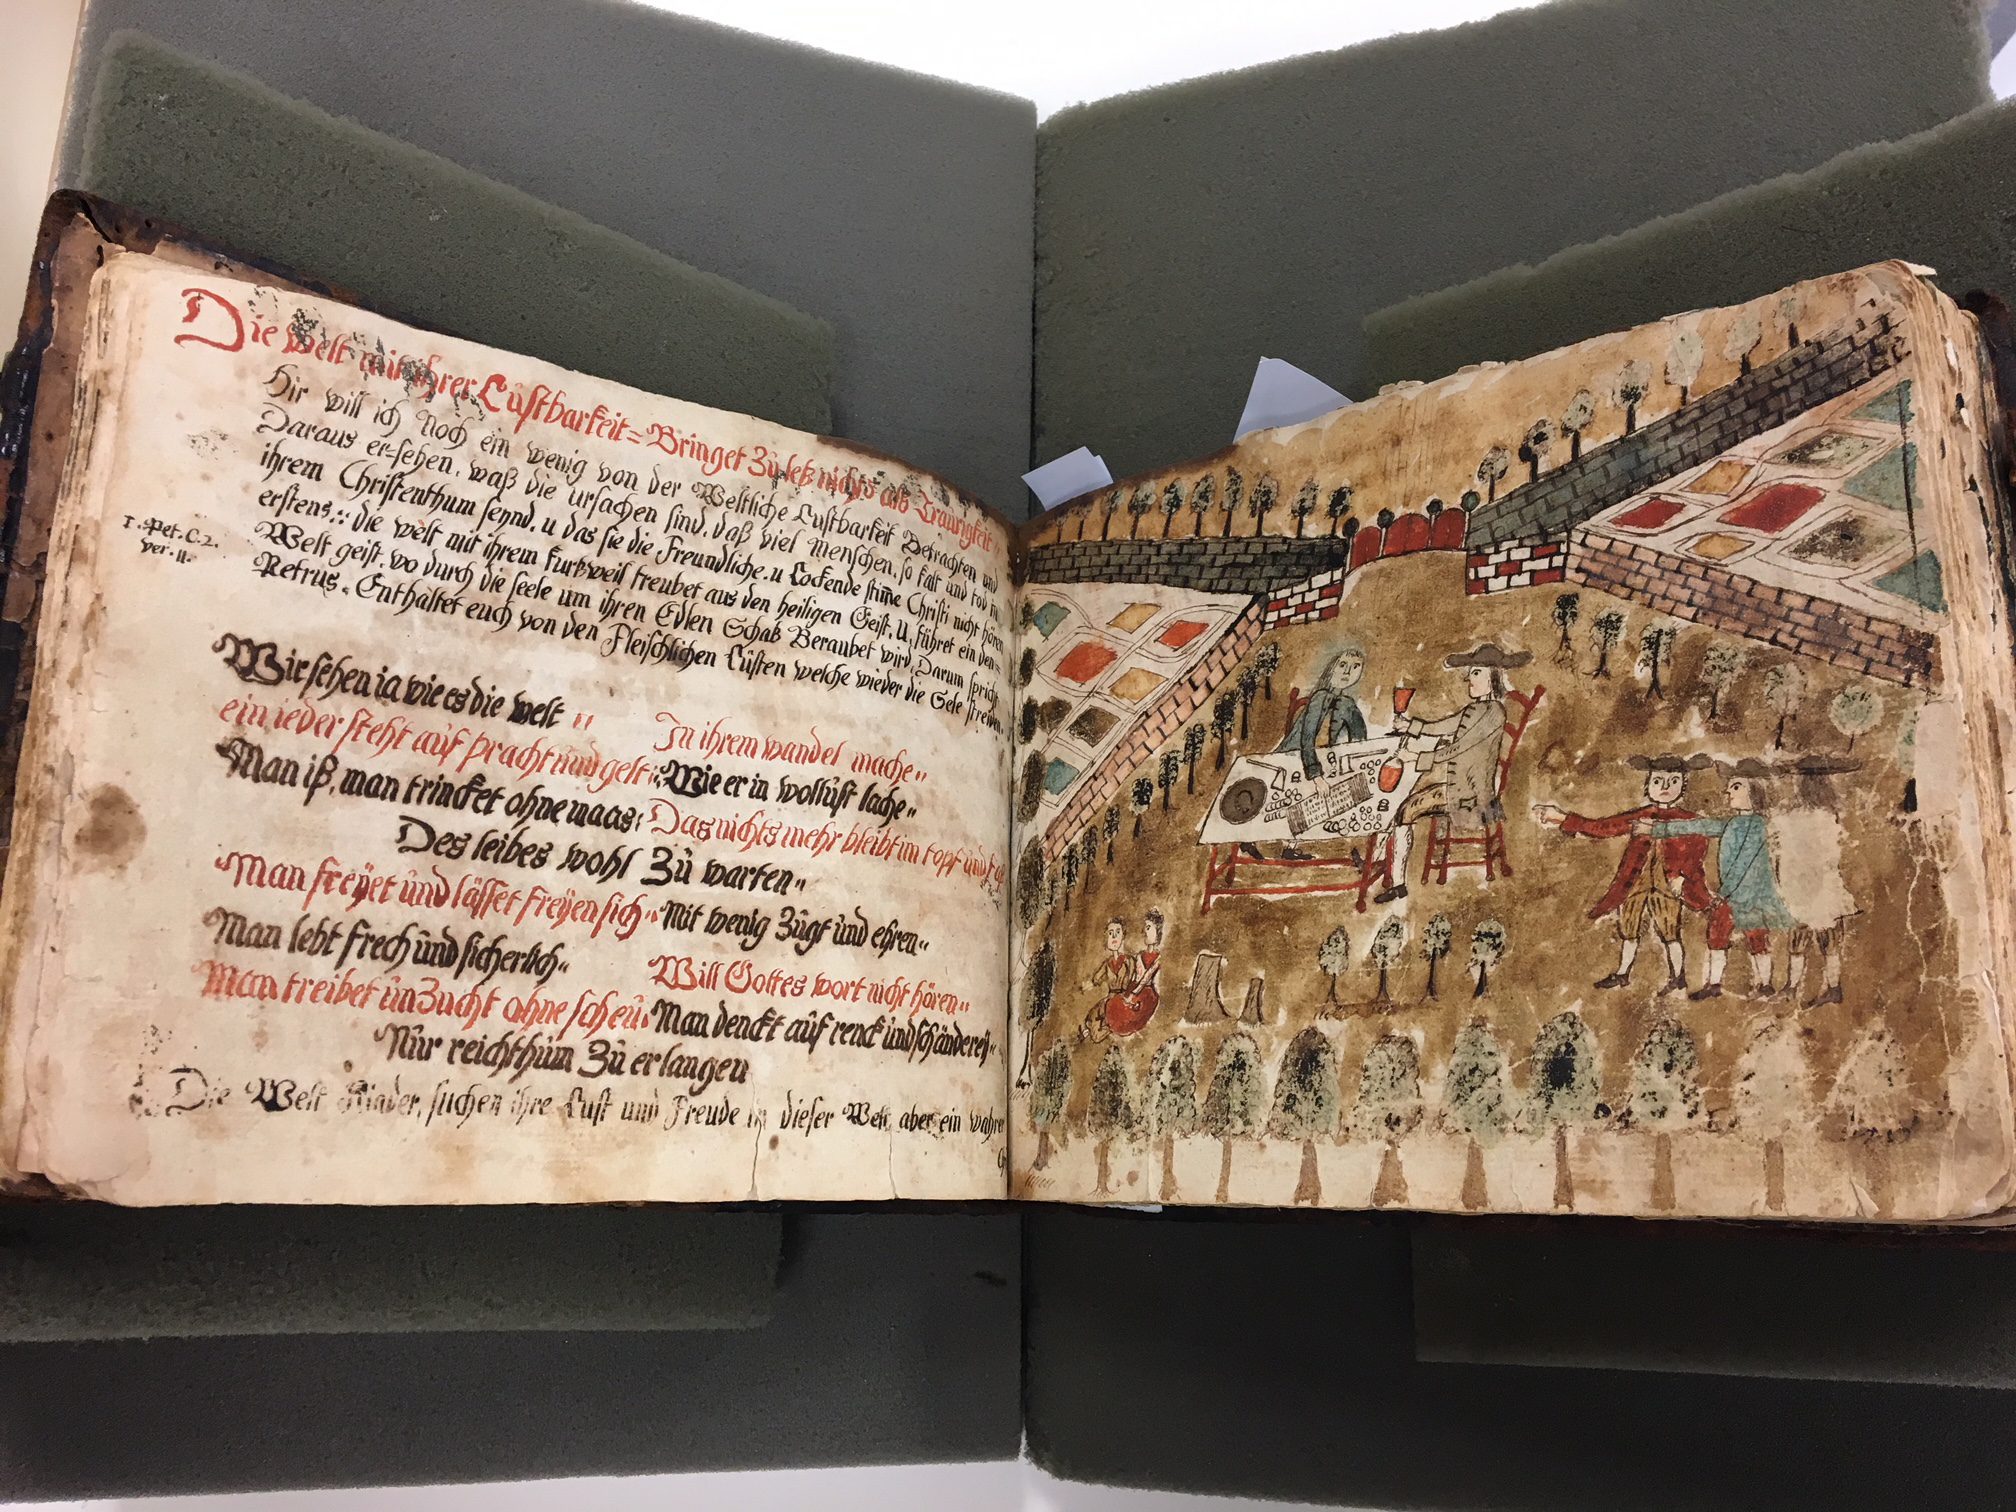 Die Welt mit ihrer Lustbarkeit = Bringet Zuletz nichts als Traurigkeit
Hir will ich Noch ein wenig von der Weltliche Lustbarkeit Betrachten und
Daraus er=sehen, waß die ursachen sind, daß viel Menschen, so kalt und tod in
ihrem Christenthum seynd, u das sie die Freundliche, u Lockende stim̄e Christi nicht hören
erstens :: die welt mit ihrem kurtzweil treubet aus den heiligen Geist, U, führet ein den =
1. Pet. C. 2.
ver. 11.
Welt geist, wo durch die seele um ihren Edlen Schatz Beraubet wird, Darum spricht
Petrus, Enthaltet euch von den Fleischlichen Lüsten welche wieder die Sele streiten
Wir sehen ia wie es die welt " In ihrem wandel mache "
ein ieder steht auf pracht und gelt :: Wie er in wollust lache "
Man iß, man trincket ohne maas : Das nichts mehr bleibt im topf und
Des leibes wohl Zu warten "
Man freÿet und lässet freÿen sich " Mit wenig Zugt und ehren "
Man lebt frech und sicherlich " Will Gottes wort nicht hören "
Man treibet unZucht ohne scheu " Man denckt auf renck und schänderey "
Nur reichthum Zu erlangen
Die Welt Kinder, suchen ihre Lust und Freude in dieser Welt, aber ein wahrer